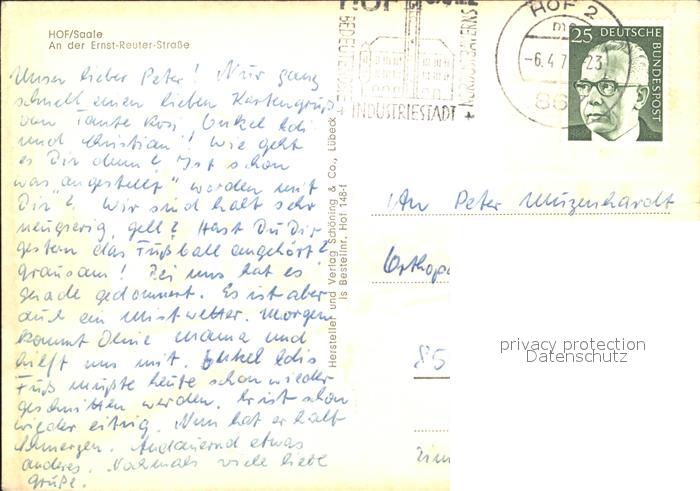 HOF/Saale
An der Ernst-Reuter-Straße
Unser lieber Peter! Nur ganz
schnell einen lieben Kartengruß
von Tante Rosi, Onkel Edi
und Christian! Wie geht
es Dir denn? Ist schon
was "angestellt" worden mit
Dir? Wir sind halt sehr
neugierig, gell? Hast Du Dir
gestern das Fußball angehört?
grausam! Bei uns hat es
gerade gedonnert. Es ist aber
auch ein Mistwetter. Morgen
kommt Deine Mama und
hilft uns mit. Onkel Edis
Fuß mußte heute schon wieder
geschnitten werden. Er ist schon
wieder eitrig. Nun hat er halt
Schmerzen. Andauernd etwas
anderes. Nochmals viele liebe
Grüße.
Hersteller und Verlag Schöning & Co., Lübeck
Is Bestellnr. Hof 148-f
HOF
INDUSTRIESTADT
HOF 2
m
-6.4.7
23
86
25 DEUTSCHE
BUNDESPOST
An Peter Munzenhardt
Orthop
85
privacy protection
Datenschutz